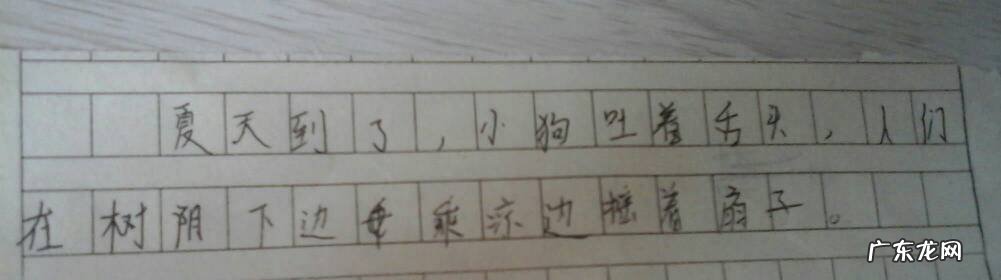 夏天到了，小狗吐着舌头，人们
在树阴下边乘凉边摇着扇子。
广东龙网